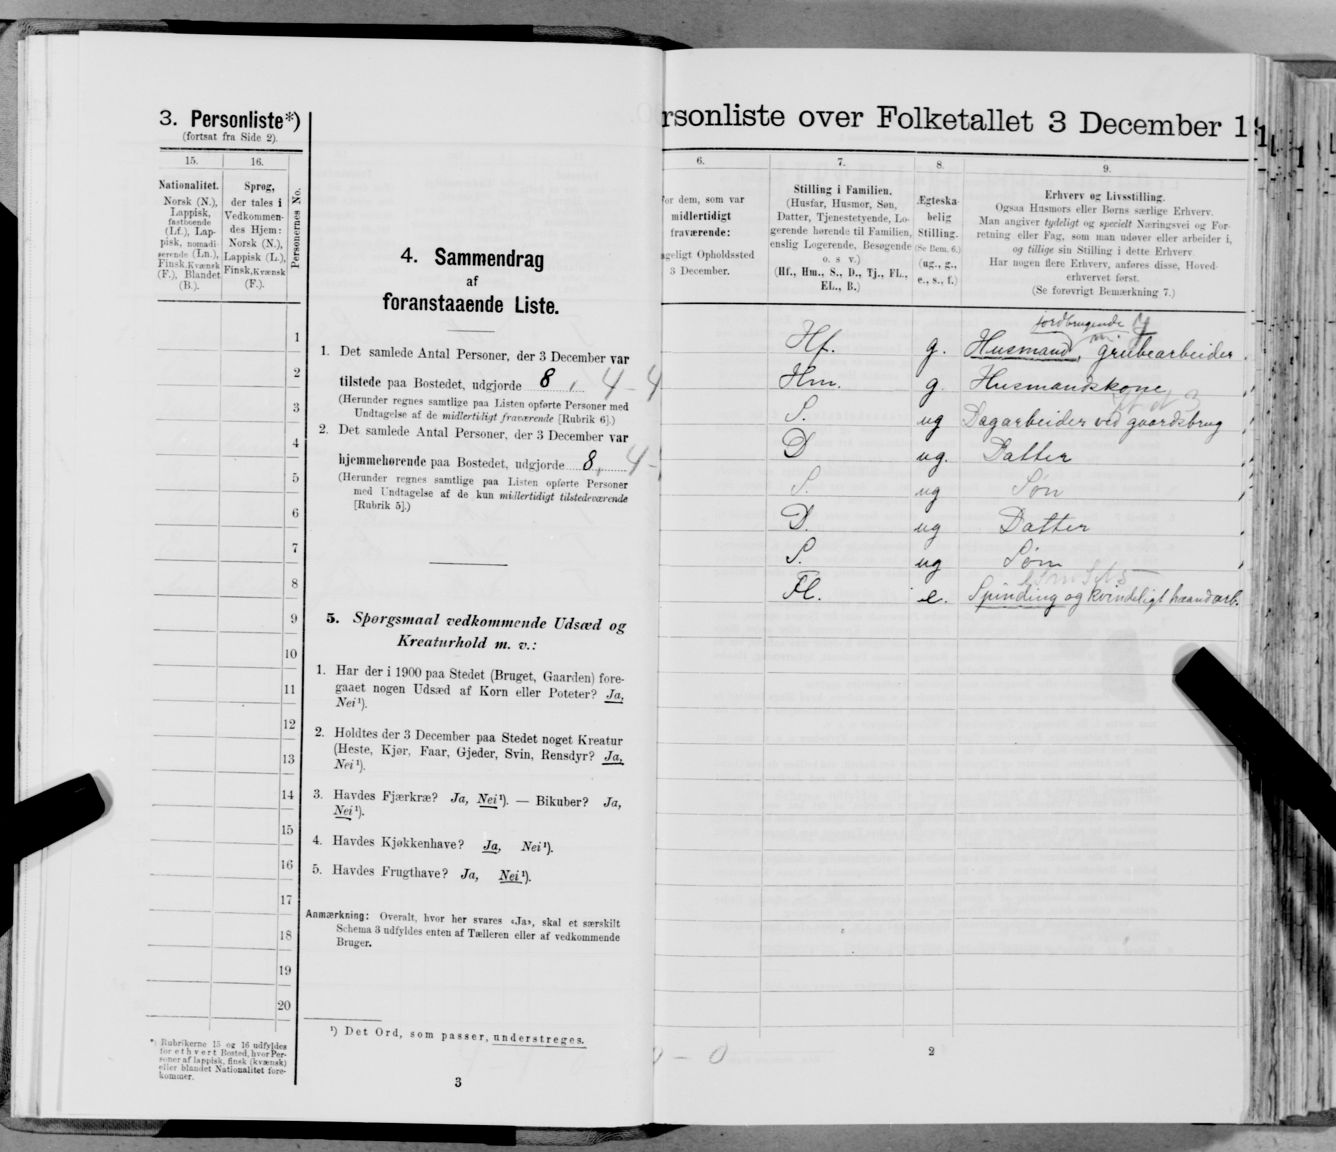 3. Personliste*)
(fortsat fra Side 2).
15.
16.
Nationalitet.
Norsk (N.),
Lappisk,
fastboende
(Lf.), Lap-
pisk, nomadi-
serende (Ln.),
Finsk, Kvænsk
(F.), Blandet
(B.).
Sprog,
der tales i
Vedkommen-
des Hjem:
Norsk (N.),
Lappisk (L.),
Finsk, Kvænsk
(F.).
Personernes No.
1
2
3
4
5
6
7
8
9
10
11
12
13
14
15
16
17
18
19
20
*) Rubrikerne 15 og 16 udfyldes
for ethvert Bosted, hvor Per-
soner af lappisk, finsk (kvænsk)
eller blandet Nationalitet fore-
kommer.
4. Sammendrag
af
foranstaaende Liste.
1. Det samlede Antal Personer, der 3 December var
tilstede paa Bostedet, udgjorde 8, 4-4
(Herunder regnes samtlige paa Listen opførte Personer med
Undtagelse af de midlertidigt fraværende [Rubrik 6].)
2. Det samlede Antal Personer, der 3 December var
hjemmehørende paa Bostedet, udgjorde 8, 4-
(Herunder regnes samtlige paa Listen opførte Personer
med Undtagelse af de kun midlertidigt tilstedeværende
[Rubrik 5].)
5. Spørgsmaal vedkommende Udsæd og
Kreaturhold m. v.:
1. Har der i 1900 paa Stedet (Bruget, Gaarden) fore-
gaaet nogen Udsæd af Korn eller Poteter? Ja,
Nei¹).
2. Holdtes der 3 December paa Stedet noget Kreatur
(Heste, Kjør, Faar, Gjeder, Svin, Rensdyr? Ja,
Nei¹).
3. Havdes Fjærkræ? Ja, Nei¹). — Bikuber? Ja,
Nei¹).
4. Havdes Kjøkkenhave? Ja, Nei¹).
5. Havdes Frugthave? Ja, Nei¹).
Anmærkning: Overalt, hvor her svares «Ja», skal et særskilt
Schema 3 udfyldes enten af Tælleren eller af vedkommende
Bruger.
¹) Det Ord, som passer, understreges.
3
rsonliste over Folketallet 3 December 1
6.
7.
8.
9.
for dem, som var
midlertidigt
fraværende:
ageligt Opholdssted
3 December.
Stilling i Familien.
(Husfar, Husmor, Søn,
Datter, Tjenestetyende, Lo-
gerende hørende til Familien,
enslig Logerende, Besøgende
o. s v.)
(Hf., Hm., S., D., Tj., FL.,
EL., B.)
Ægteska-
belig
Stilling.
(Se Bem. 6.)
(ug., g.,
e., s., f.)
Erhverv og Livsstilling.
Ogsaa Husmors eller Børns særlige Erhverv.
Man angiver tydeligt og specielt Næringsvei og For-
retning eller Fag, som man udøver eller arbeider i,
og tillige sin Stilling i dette Erhverv.
Har nogen flere Erhverv, anføres disse, Hoved-
erhvervet først.
(Se forøvrigt Bemærkning 7.)
jordbrugende
Hf. g. Husmand, grubearbeider
Hm. g. Husmandskone
S. ug Dagarbeider ved gaardsbrug
D ug. Datter
S. ug Søn
D. ug Datter
S. ug Søn
Fl. e. Spinding og kvindeligt haandarb.
0 - 0
2